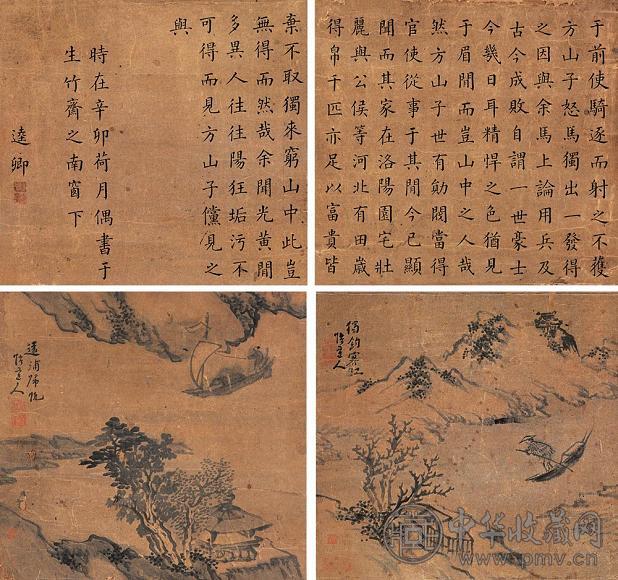 于前使騎逐而射之不獲
方山子怒馬獨出一發得
之因與余馬上論用兵及
古今成敗自謂一世豪士
今幾日耳精悍之色猶見
于眉間而豈山中之人哉
然方山子世有勛閥當得
官使從事于其間今已顯
聞而其家在洛陽園宅壯
麗與公侯等河北有田歲
得帛千匹亦足以富貴皆
棄不取獨來窮山中此豈
無得而然哉余聞光黃間
多異人往往陽狂垢污不
可得而見方山子儻見之
與
時在辛卯荷月偶書于
生竹齋之南窗下
逵卿
獨釣寒江
道人
遠浦歸帆
道人
中华收藏网
www.pmv.cn